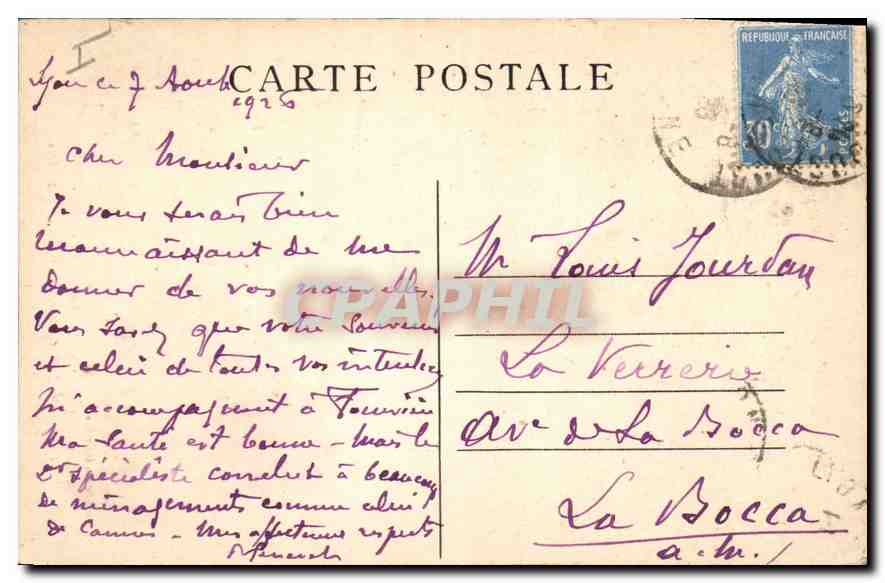 I
CARTE POSTALE
REPUBLIQUE FRANÇAISE
30c
POSTES
Lyon ce 7 Août
1926
Cher Monsieur
Je vous serais bien
reconnaissant de me
donner de vos nouvelles.
Vous savez que votre souvenir
et celui de toutes vos intentions
m'accompagnent à Fourvière
Ma santé est bonne - Mais le
Dr spécialiste conclut à beaucoup
de ménagements comme celui
de Cannes - Mes affectueux respects
Mr Louis Jourdan
La Verrerie
Ave de La Bocca
La Bocca
a.m.
CPAPHIL
LYON